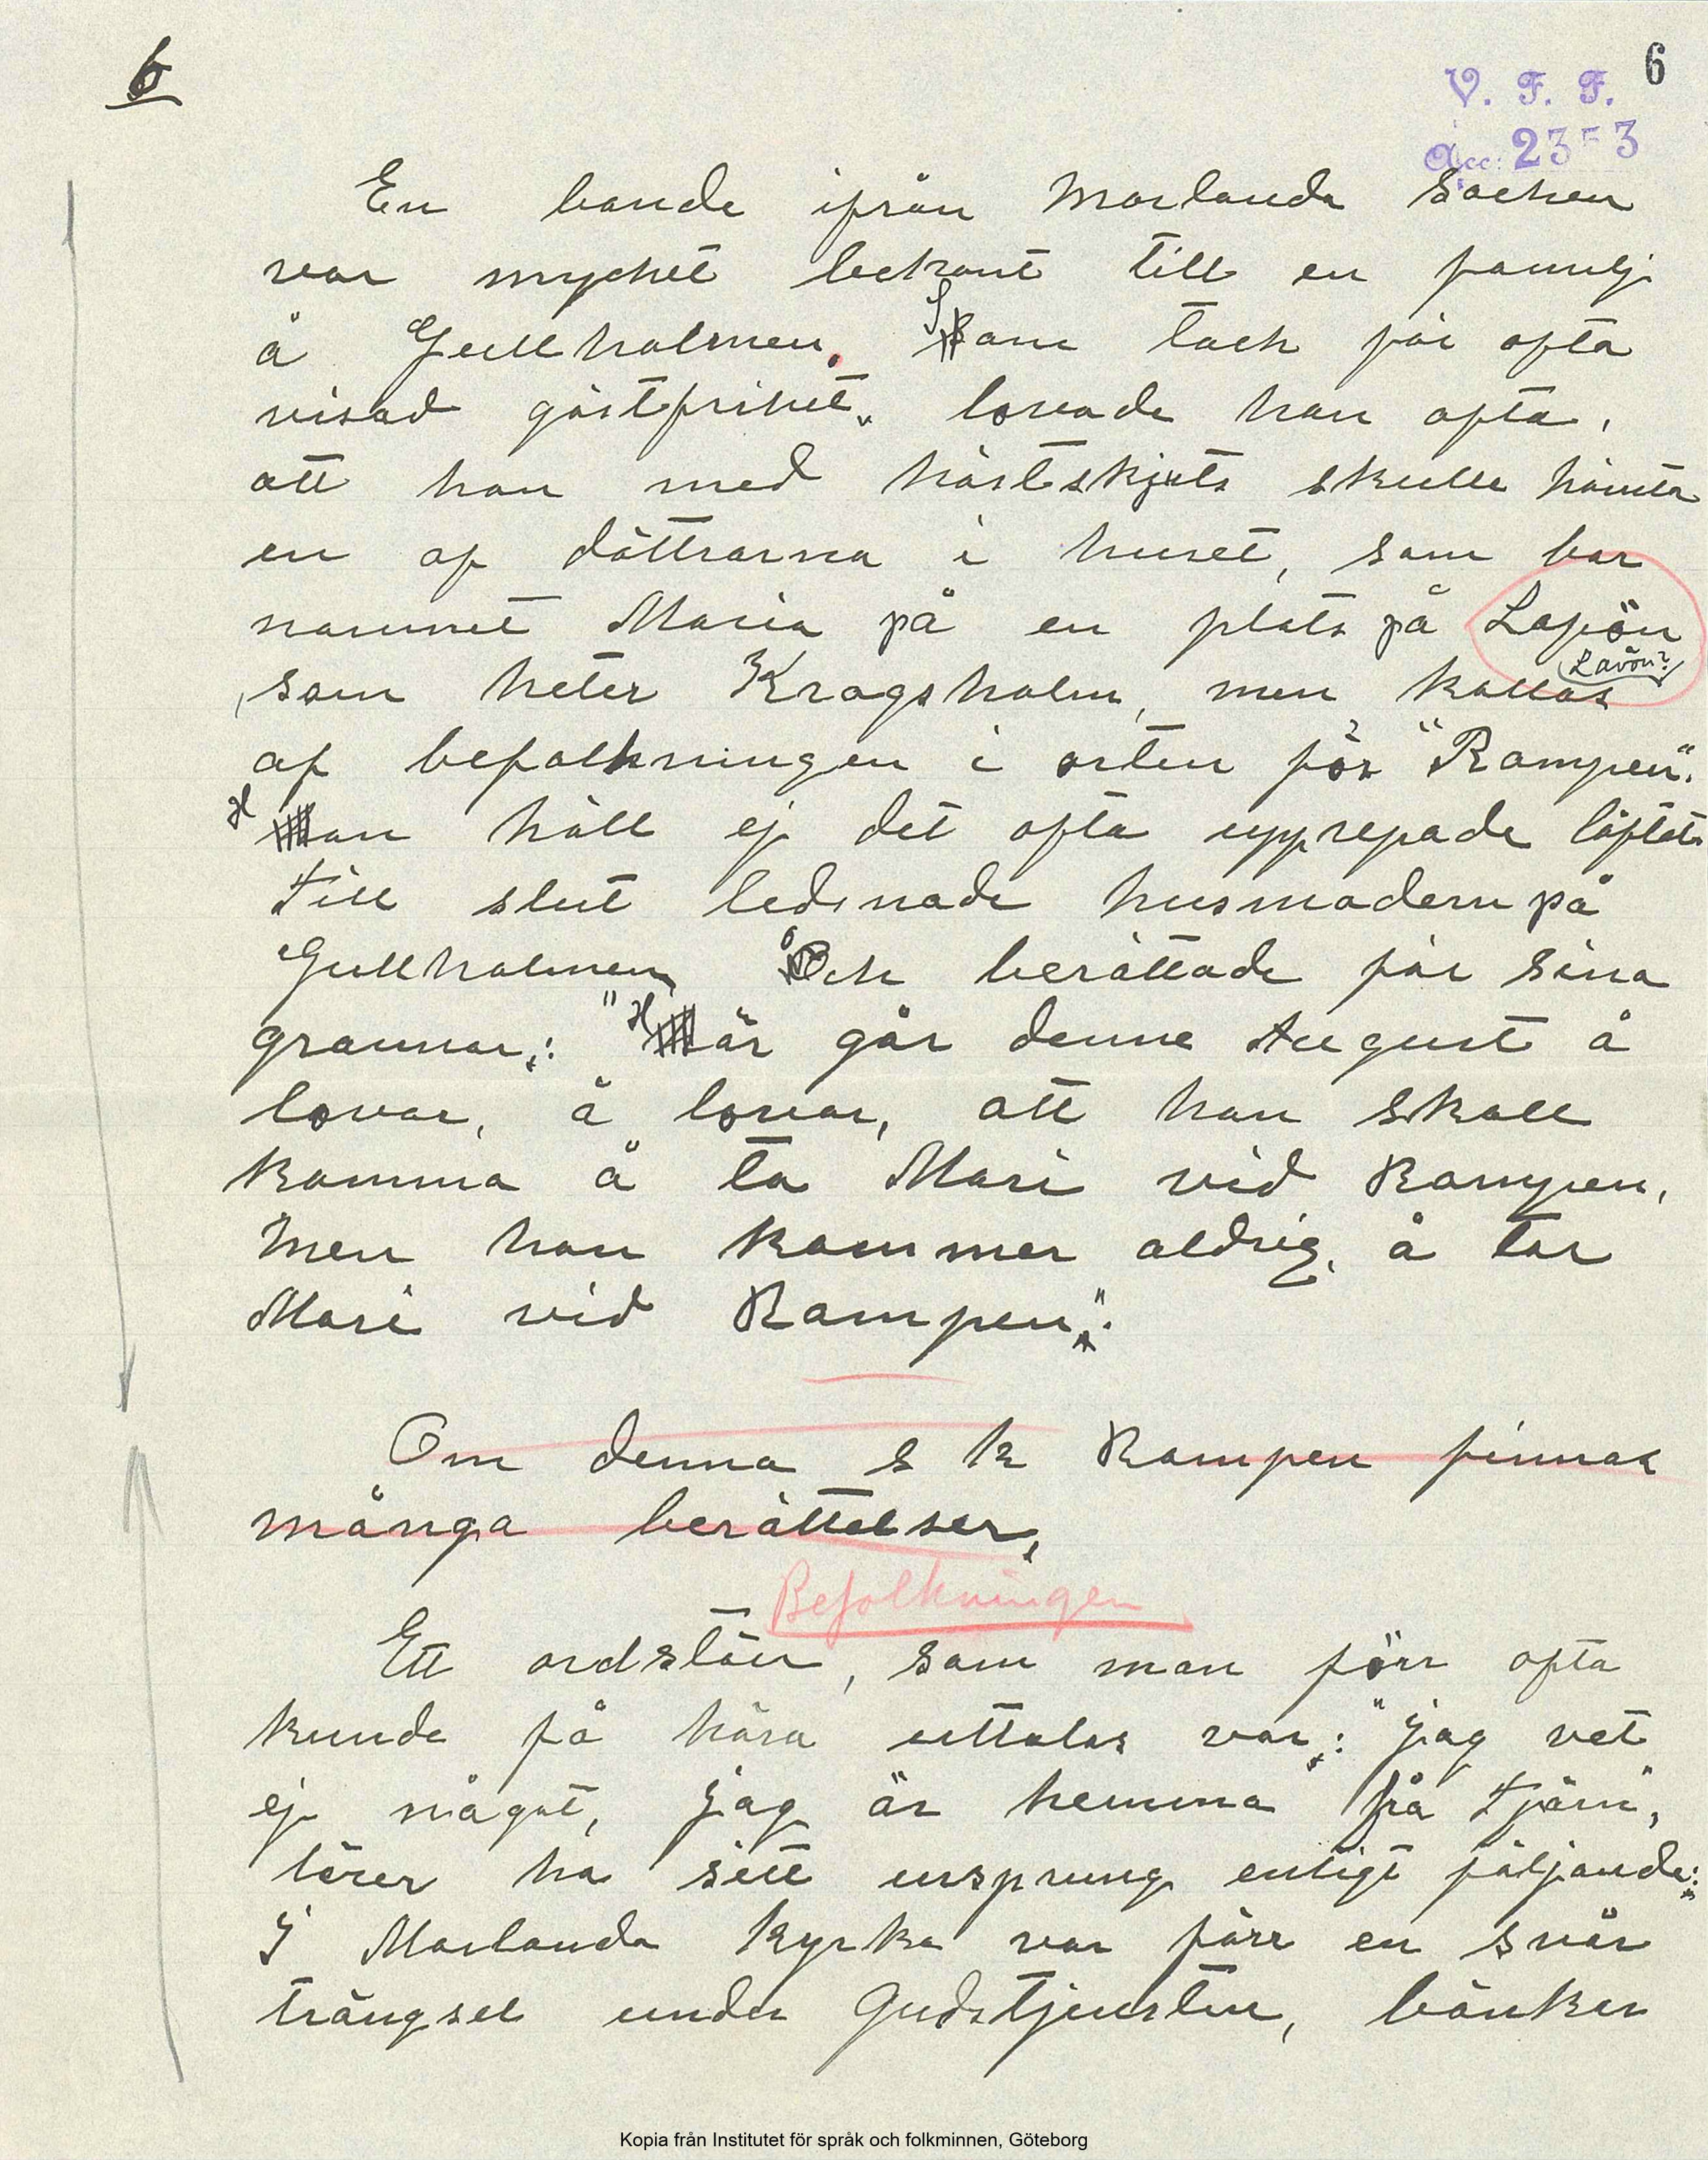 6
6
V. F. F.
Acc: 2353
En bonde ifrån Morlanda Socken
var mycket bekant till en familj
å Gullholmen. Som tack för ofta
visad gästfrihet lovade han ofta,
att han med hästskjuts skulle hämta
en af döttrarna i huset, som bar
namnet Maria på en plats på Lafön
Lavön?
som heter Kragsholm, men kallas
af befolkningen i orten för "Rampen".
Han höll ej det ofta upprepade löftet.
Till slut ledsnade husmodern på
Gullholmen, Och berättade för sina
grannar: "Här går denne August å
lovar, å lovar, att han skall
komma å ta Mari vid Rampen,
Men han kommer aldrig å tar
Mari vid Rampen".
Om denna s k Rampen finnas
många berättelser,
Befolkningen
Ett ordstäv, som man förr ofta
kunde få höra uttalas var: "jag vet
ej något, jag är hemma frå Tjörn",
lörer ha sitt ursprung enligt följande:
I Morlanda kyrka var förr en svår
trängsel under Gudstjensten, bänkar
Kopia från Institutet för språk och folkminnen, Göteborg